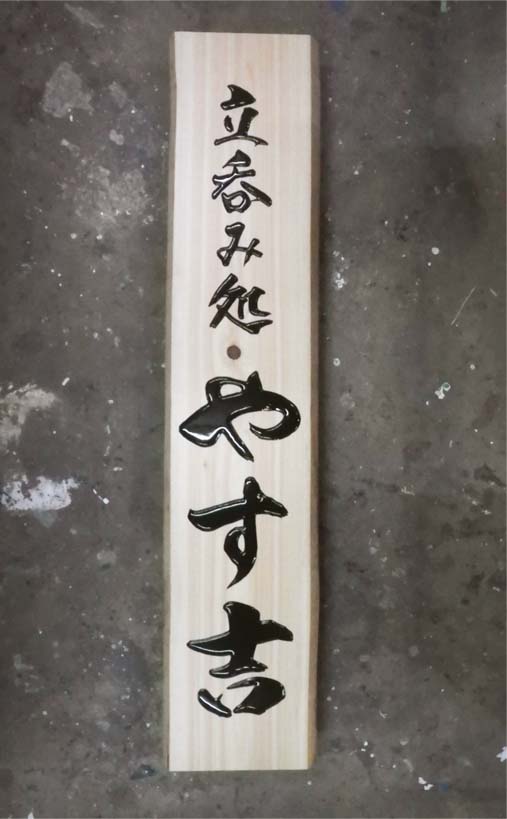 立呑み処 やす吉